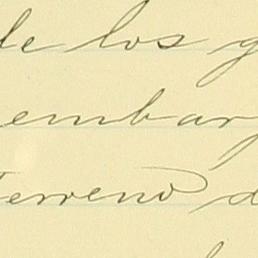 de los g
embar
terreno d